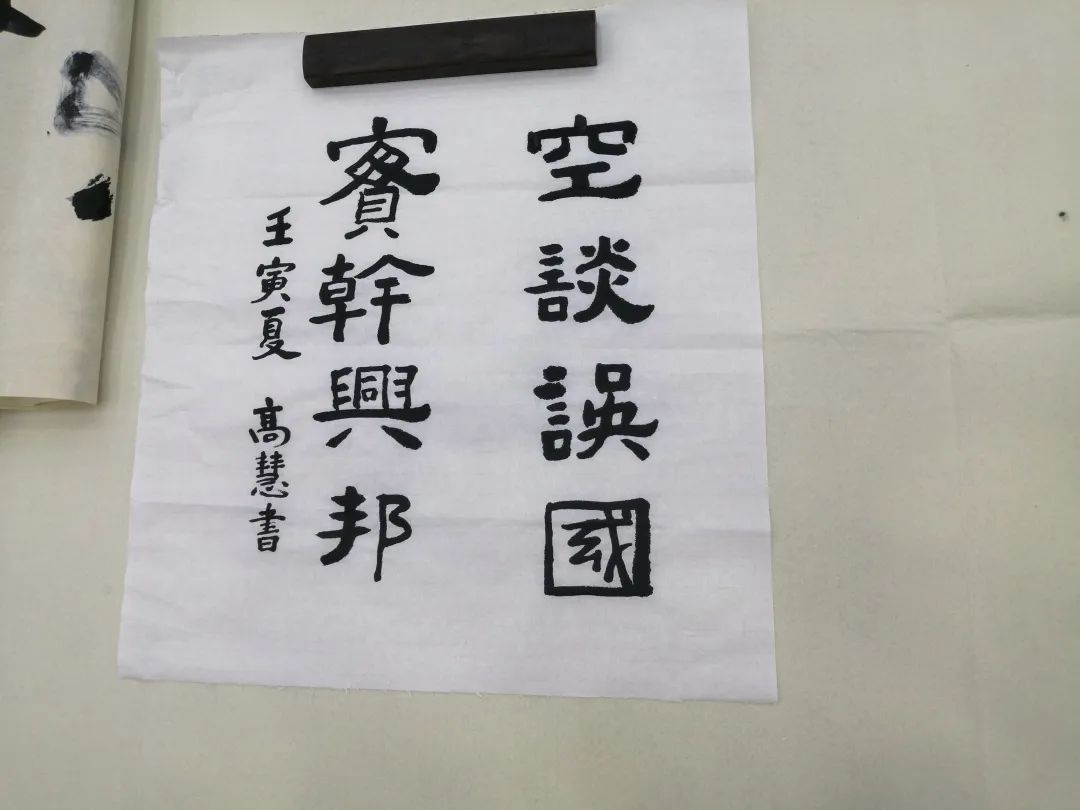 空談誤國
賓幹興邦
壬寅夏 高慧書